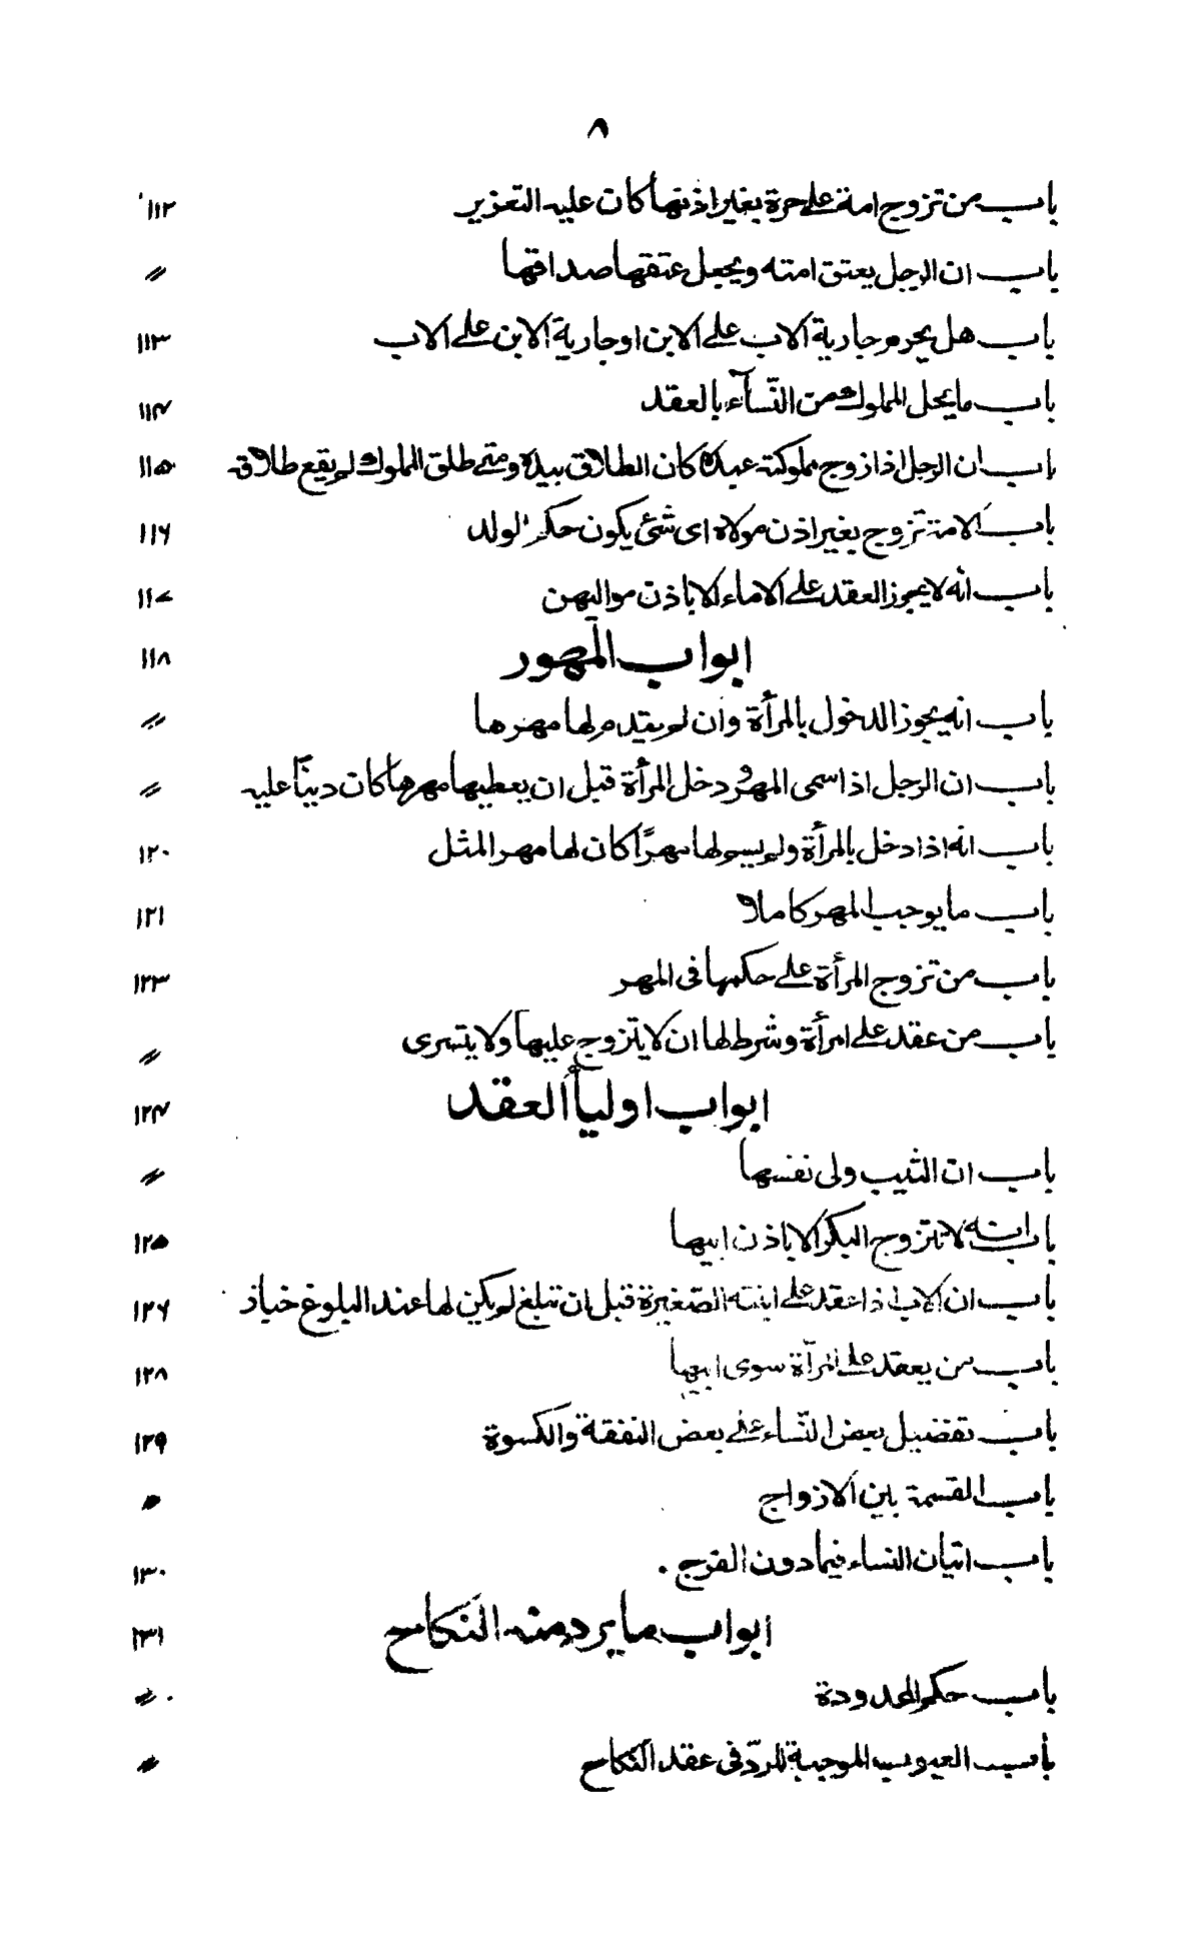 ٨
باب من تزوج امة على حرة بغير اذنها كان عليه التعزير ١١٢
باب ان الرجل يعتق امته ويجعل عتقها صداقها ″
باب هل يحرم جارية الاب على الابن او جارية الابن على الاب ١١٣
باب ما يحل للمملوك من النّسآء بالعقد ١١۴
باب ان الرجل اذا زوج مملوكته عبده كان الطلاق بيده ومتى طلق المملوك لم يقع طلاقه ١١۵
باب الامة تزوج بغير اذن مولاه اى شئ يكون حكم الولد ١١۶
باب انه لا يجوز العقد على الاماء الا باذن مواليهن ١١٧
ابواب المهور ١١٨
باب انه يجوز الدخول بالمرأة وان لم يقدم لها مهرها ″
باب ان الرجل اذا سمى المهر ودخل المرأة قبل ان يعطيها مهرها كان ديناً عليه ″
باب انه اذا دخل بالمرأة ولم يسم لها مهرًا كان لها مهر المثل ١٢٠
باب ما يوجب المهر كاملا ١٢١
باب من تزوج المرأة على حكمها فى المهر ١٢٣
باب من عقد على امرأة وشرط لها ان لا يتزوج عليها ولا يتسرى ″
ابواب اوليأ العقد ١٢۴
باب ان الثيب ولى نفسها ″
باب انه لا تتزوج البكر الا باذن ابيها ١٢۵
باب ان الاب اذا عقد على ابنته الصّغيرة قبل ان تبلغ لم يكن لها عند البلوغ خيار ١٢۶
باب من يعقد على المرأة سوى ابيها ١٢٨
باب تفضيل بعض النّساء على بعض النفقة والكسوة ١٢٩
باب القسمة بين الازواج ″
باب اتيان النساء فيما دون الفرج . ١٣٠
ابواب ما يرد منه النكاح ١٣١
باب حكم المحدودة ″
باب العيوب الموجبة للردّ فى عقد النّكاح ″